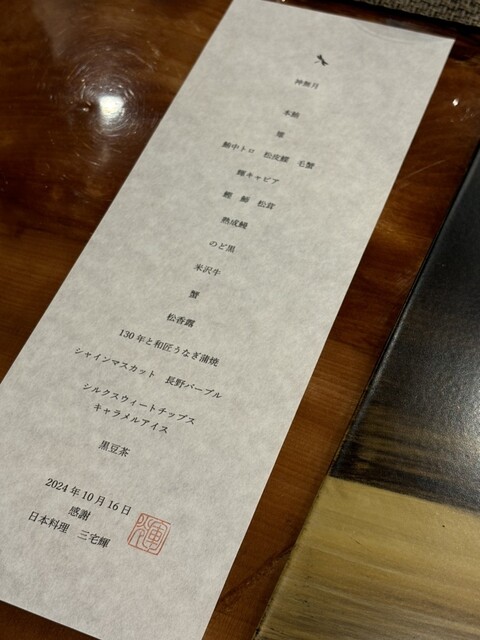 神無月
本鮪
雲
鮪中トロ 松皮鰈 毛蟹
輝キャビア
鰹 鰤 松茸
熟成鰻
のど黒
米沢牛
蟹
松香露
130年と和匠うなぎ蒲焼
シャインマスカット 長野パープル
シルクスウィートチップス
キャラメルアイス
黒豆茶
2024年10月16日
感謝
日本料理 三宅輝
輝